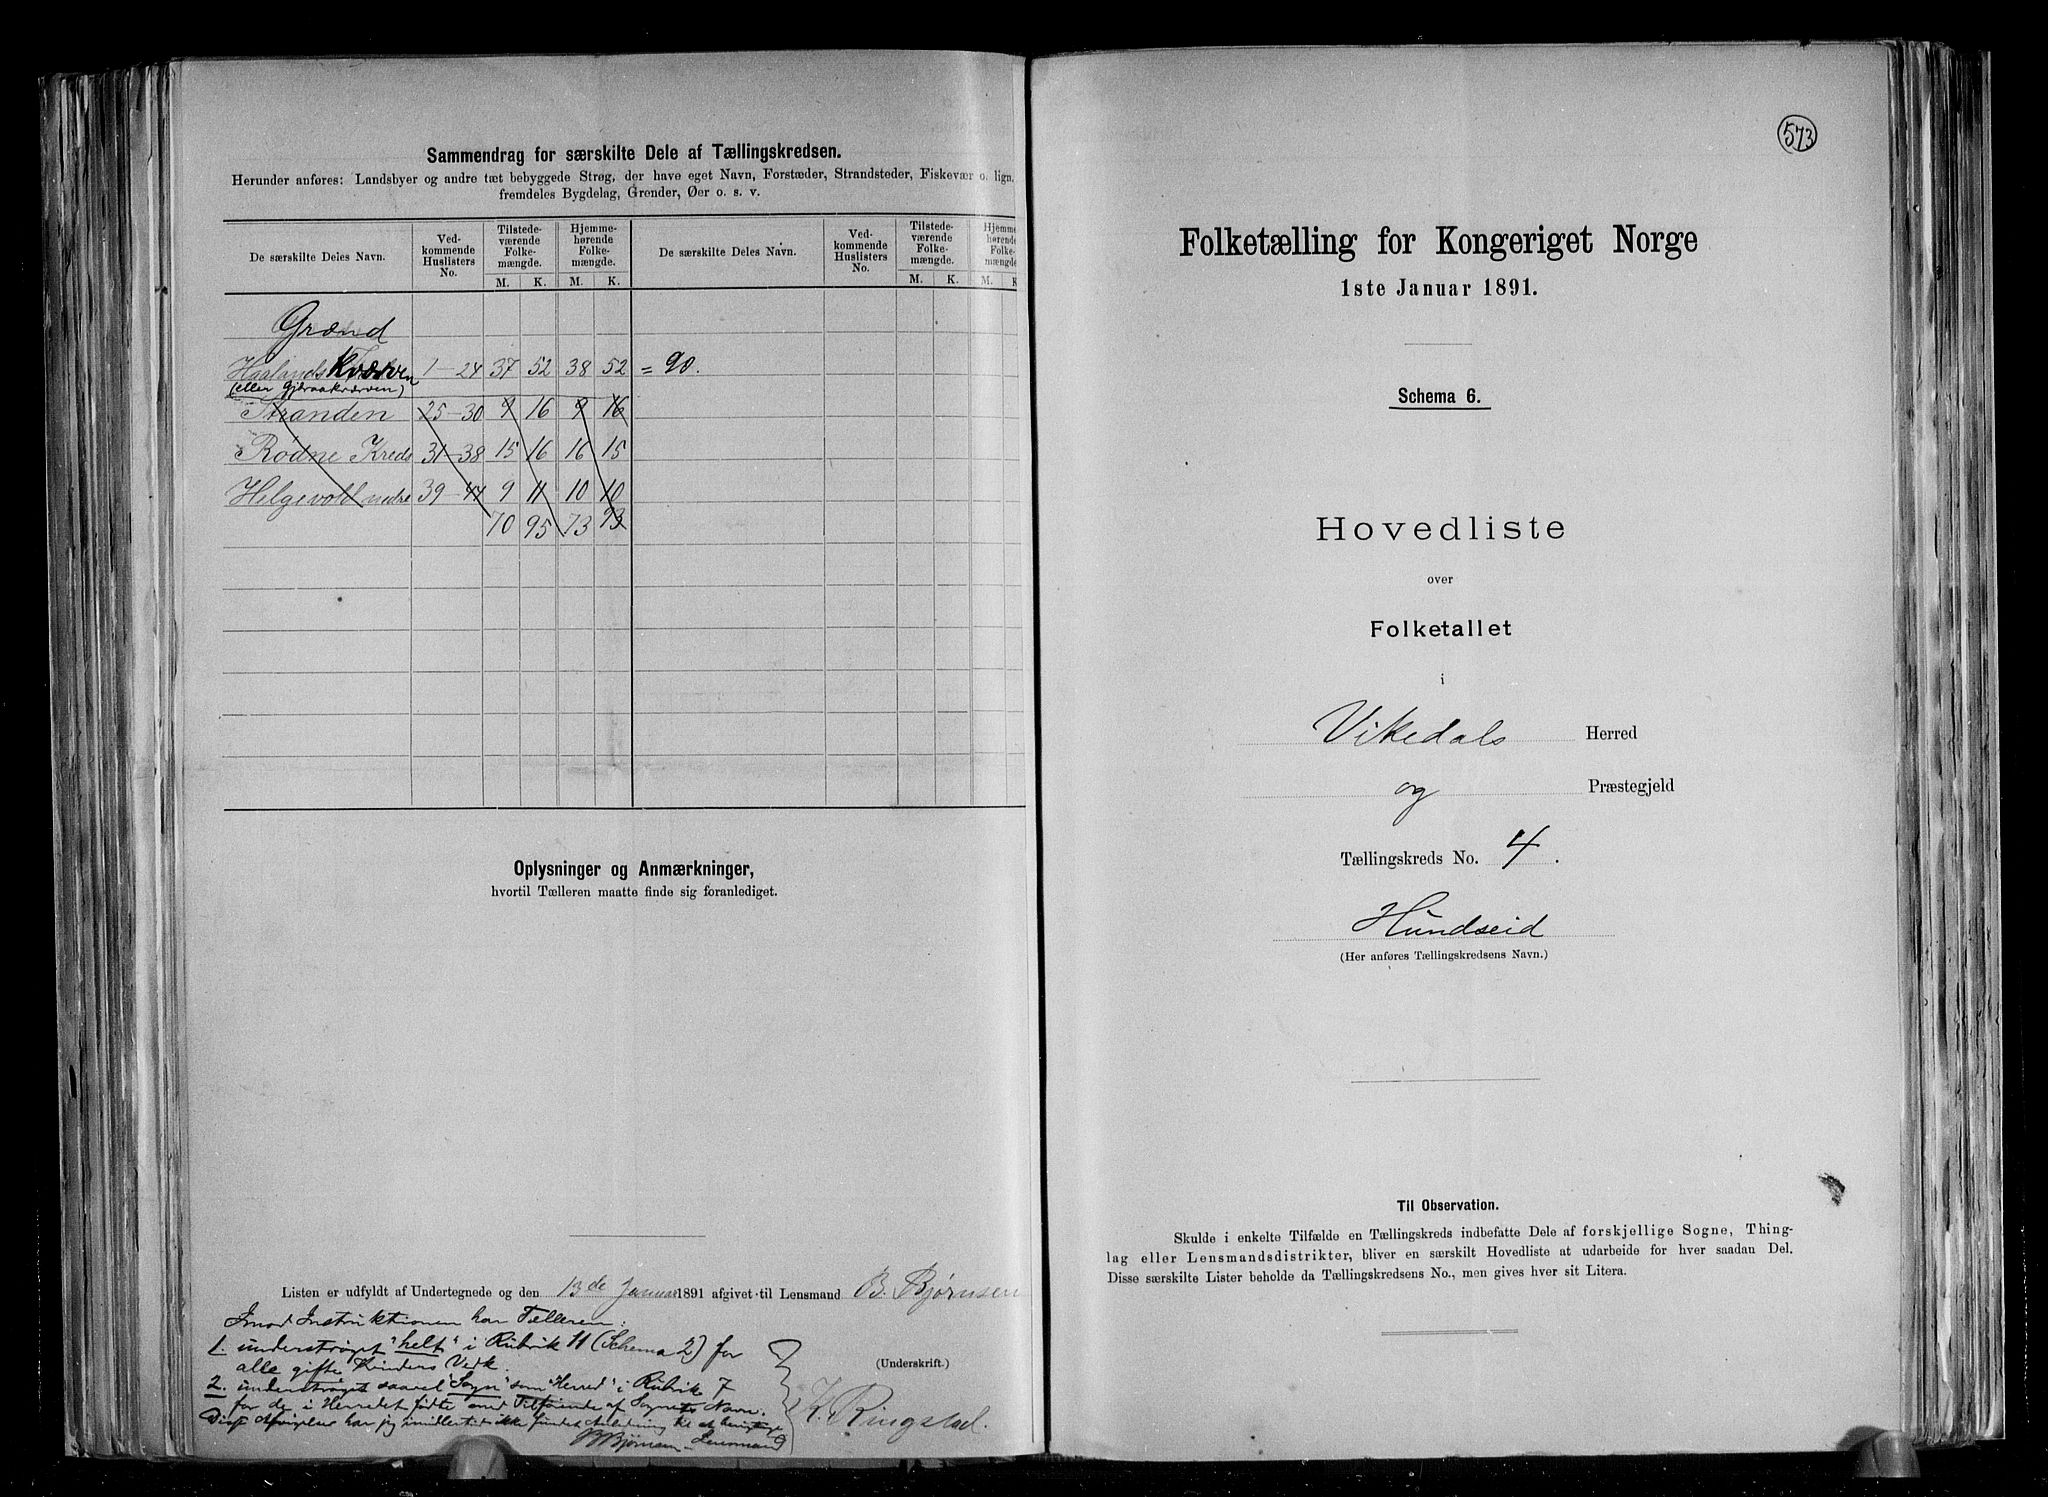 Sammendrag for særskilte Dele af Tællingskredsen.
Herunder anføres: Landsbyer og andre tæt bebyggede Strøg, der have eget Navn, Forstæder, Strandsteder, Fiskevær o. lign.
fremdeles Bygdelag, Grender, Øer o. s. v.
De særskilte Deles Navn. Ved-kommende Huslisters No. Tilstede-værende Folke-mængde. Hjemme-hørende Folke-mængde. De særskilte Deles Navn. Ved-kommende Huslisters No. Tilstede-værende Folke-mængde. Hjemme-hørende Folke-mængde
M. K. M. K. M. K. M. K
Grænd
Haalands Kværven 1-24 37 52 38 52 = 90.
(eller Gjeraakværven)
Stranden 25-30 9 16 9 16
Rødne Kreds 31-38 15 16 16 15
Helgevold nedre 39-44 9 11 10 10
70 95 73 93
Oplysninger og Anmærkninger,
hvortil Tælleren maatte finde sig foranlediget.
Listen er udfyldt af Undertegnede og den 13de Januar 1891 afgivet til Lensmand B. Bjørnsen
Imod Instruktionen har Tælleren:
1. understrøget "helt" i Rubrik 11 (Schema 2) for
alle gifte Kvinders Vedk.
(Underskrift.)
2. understrøget saavel "Sogn" som "Herred" i Rubrik 7
for de i Herredet fødte med Tilføiende af Sognets Navn.
Disse har jeg imidlertid ikke fundet Anledning til at
BBjørnsen Lensmand
K. Ringstad.
573
Folketælling for Kongeriget Norge
1ste Januar 1891.
Schema 6.
Hovedliste
over
Folketallet
i
Vikedals Herred
og Præstegjeld
Tællingskreds No. 4.
Hundseid
(Her anføres Tællingskredsens Navn.)
Til Observation.
Skulde i enkelte Tilfælde en Tællingskreds indbefatte Dele af forskjellige Sogne, Thing-
lag eller Lensmandsdistrikter, bliver en særskilt Hovedliste at udarbeide for hver saadan Del.
Disse særskilte Lister beholde da Tællingskredsens No., men gives hver sit Litera.